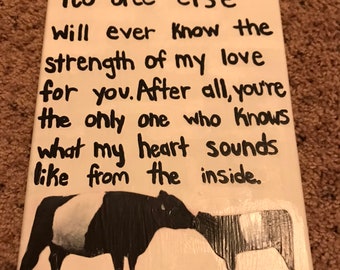 No one else
will ever know the
strength of my love
for you. After all, you're
the only one who knows
what my heart sounds
like from the inside.